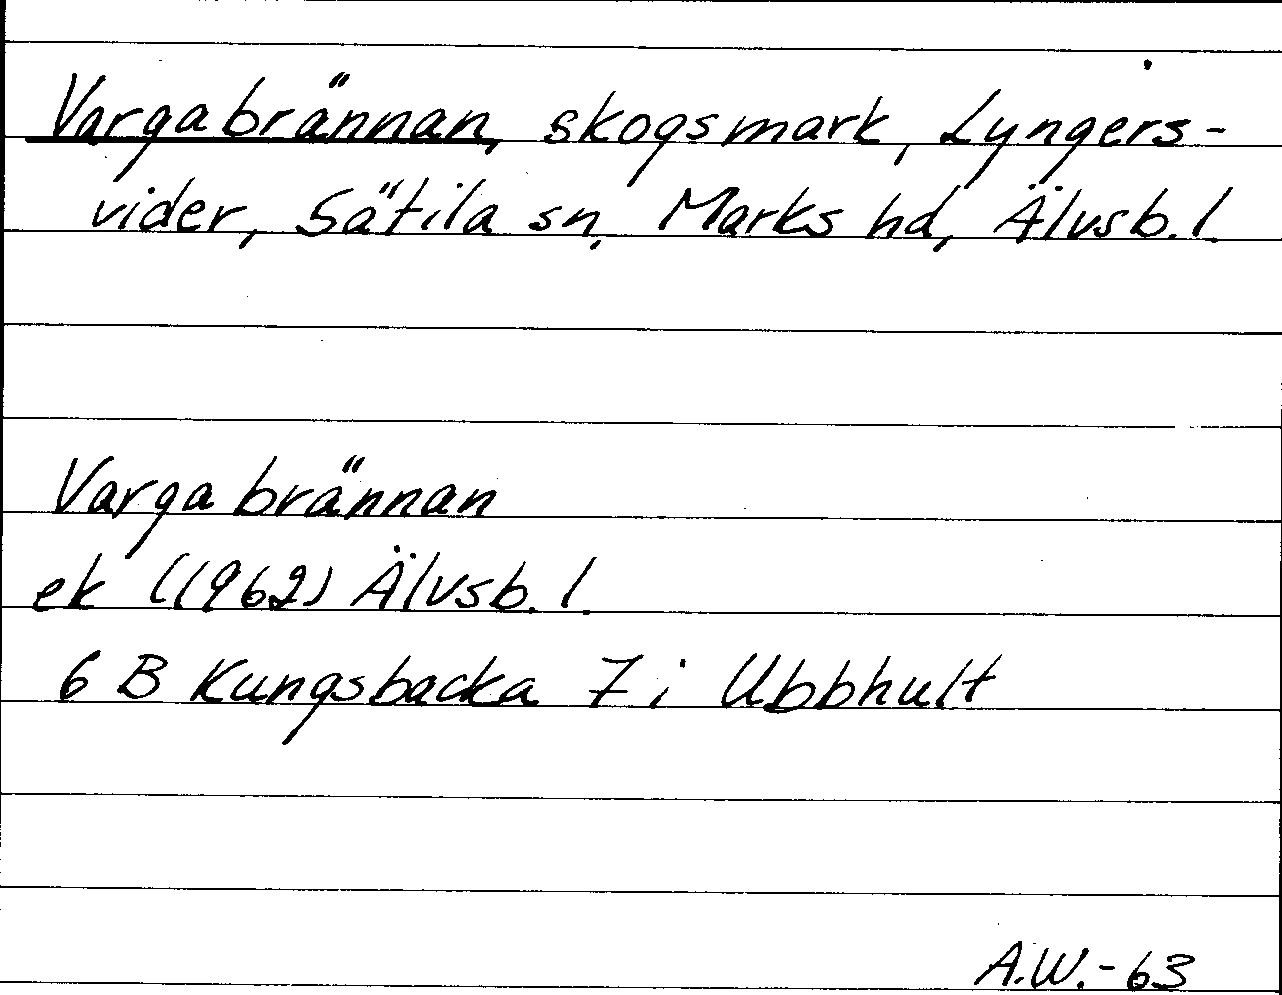 Vargabrännan, skogsmark, Lyngers-
vider, Sätila sn, Marks hd, Älvsb. l.
Vargabrännan
ek (1962) Älvsb. l.
6 B Kungsbacka 7 i Ubbhult
A.W.-63